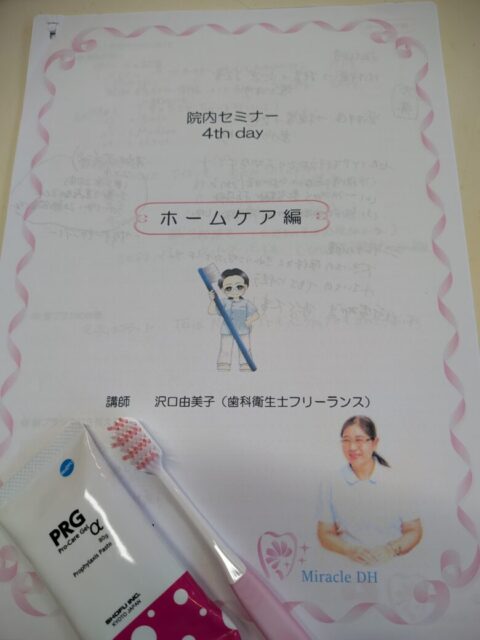 院内セミナー
4th day
ホームケア編
講師　沢口由美子（歯科衛生士フリーランス）
Miracle DH
PRG
Pro-Care Gel α
80g
Prophylaxis Paste
SHOFU INC.
KYOTO JAPAN